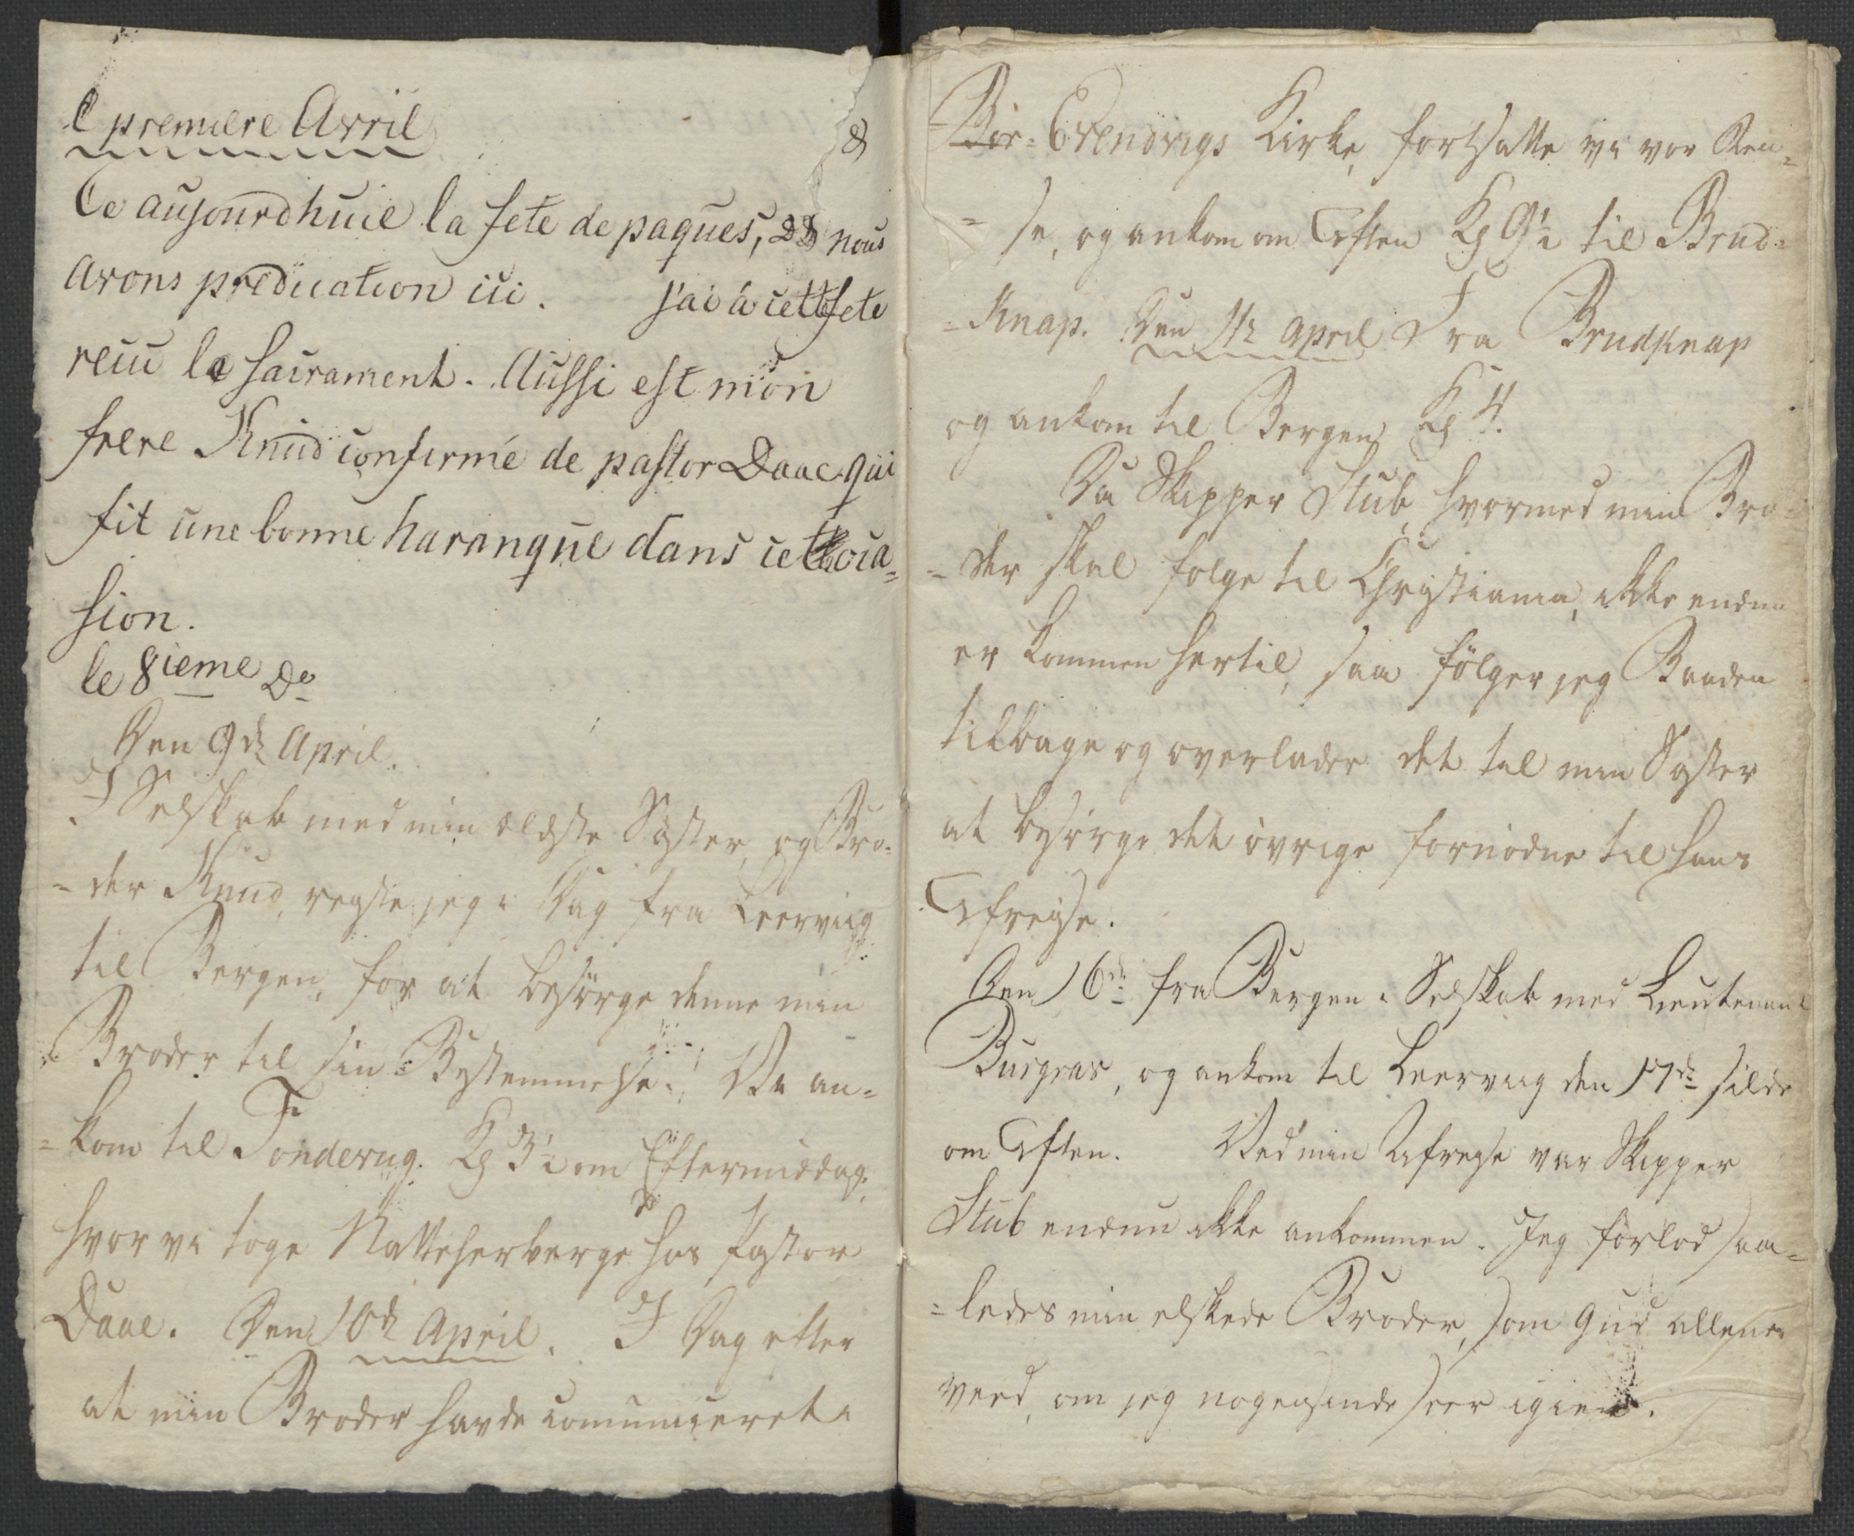 l premiere Avril
8
Ce aujourdhuie la fete de paques, nous
avons predication ici. j'ai á cette fete
recu le sacrament. Aussi est mon
frere Knud confirmé de pastor Daae qui
fit une bonne harangue dans cette oca=
sion.
le 8ieme Do
Den 9de April.
I Selskab med min ældste Syster, og Bro=
=der Knud, reyste jeg i Dag fra Leervng
til Bergen, for at besørge denne min
Broder til sin Bestemmelse. Vi an=
=kom til Tonderiig. Kl 3½ om Eftermiddag,
hvor vi toge Natteherberge hos Pastor
Daae. Den 10de April. I Dag efter
at min Broder havde comuniceret i
Bör= Evendvigs Kirke, fortsatte vi vor Rey=
=se, og ankom om Aften Kl 9½ til Brud=
=Knap. Den 11te April Fra Brudknap
og ankom til Bergen Kl 4.
Da Skipper Stub, hvormed min Bro=
=der skal følge til Christiania, ikke endnu
er kommen hertil, saa følger jeg Baaden
tilbage og overlader det til min Syster
at besørge det övrige fornödne til hans
Afreyse.
Den 16de fra Bergen i Selskab med Lieutenant
Buigras, og ankom til Leerviig den 17de silde
om Aften. Ved min Afreyse var Skipper
Stub endnu ikke ankommen. Jeg forlod saa=
=ledes min elskede Broder, som Gud allene
veed, om jeg nogensinde seer igien.